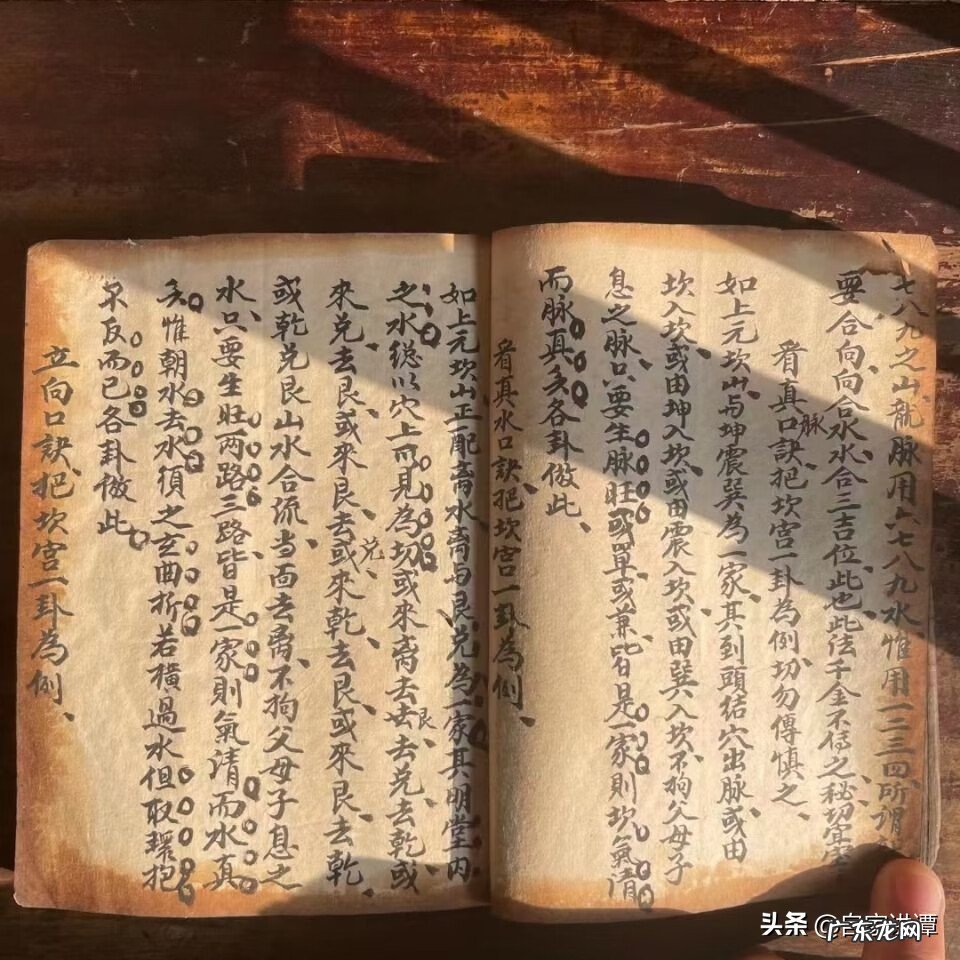 七八九之山龍脉用六七八九水惟用一二三四所謂
要合向向合水水合三吉位此也此法千金不傳之秘切宜
看真脉口訣把坎宫一卦為例切勿傳慎之
如上元坎山与坤震巽為一家其到頭结穴出脉或由
坎入坎或由坤入坎或由震入坎或由巽入坎不拘父母子
息之脉只要生脉旺或單或兼皆是一家則坎氣清
而脉真矣各卦倣此
看真水口訣把坎宫一卦為例
如上元坎山正配离水离与艮兑為一家其明堂内
之水總以穴上所見為切或來离去艮去兑去乾或
來兑去艮或來艮去兑或來乾去艮或來艮去乾
或乾兑艮山水合流当面去离不拘父母子息之
水只要生旺两路三路皆是一家則氣清而水真
矣惟朝水去水須之玄曲折若横過水但取環抱
不反而已各卦倣此
立向口訣把坎宫一卦為例
头条 @名家讲谭
广东龙网